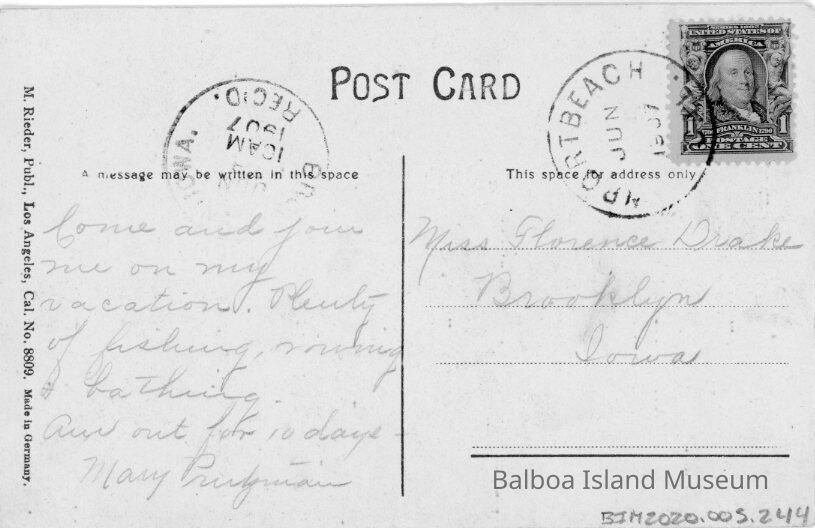 POST CARD
A message may be written in this space
This space for address only
M. Rieder, Publ., Los Angeles, Cal. No. 8809. Made in Germany.
IOWA.
REC'D.
10AM
1907
JUN
BR
PORTBEACH
JUN
1907
SERIES 1902
UNITED STATES OF
AMERICA
1 FRANKLIN 1790 1
POSTAGE
ONE CENT
Come and join
me on my
vacation. Plenty
of fishing, rowing
& bathing.
Am out for 10 days -
Mary
Miss Florence Drake
Brooklyn
Iowa
Balboa Island Museum
BIM2020.005.244